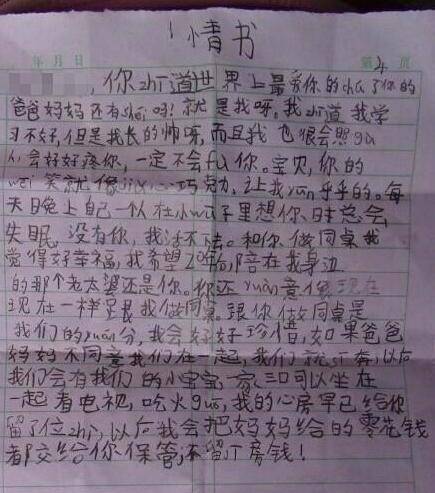 情书
年 月 日 第 页
,你zhī道世界上最爱你的chú了你的
爸爸妈妈还有shéi吗!就是我呀。我zhī道我学
习不好,但是我长的帅呀,而且我也很会照gù
人,会好好疼你,一定不会fù你。宝贝,你的
wēi笑就像jiā心巧克力,让我yūn乎乎的。每
天晚上自己一人在小wū子里想你时总会
失眠,没有你,我活不去。和你做同桌我
觉得好幸福,我希望20年后,陪在我身边
的那个老太婆还是你。你还yuàn意像现在
现在一样跟我做同桌。跟你做同桌是
我们的yuán分,我会好好珍惜,如果爸爸
妈妈不同意我们在一起,我们就sī奔,以后
我们会有我们的小宝宝,一家三口可以坐在
一起看电视,吃火guō,我的心房早已给你
留了位zhi,以后我会把妈妈给的零花钱
都交给你保管,不留丁房钱!